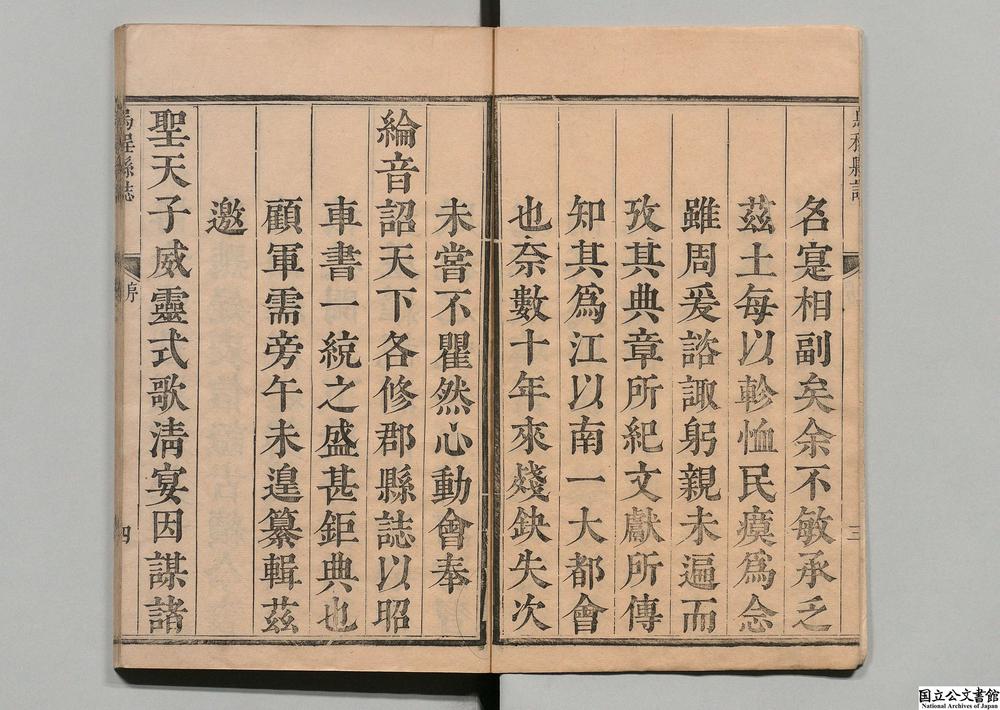 名寔相副矣余不敏承乏
茲土每以軫恤民瘼爲念
雖周爰諮諏躬親未遍而
攷其典章所紀文獻所傳
知其爲江以南一大都會
也奈數十年來殘缺失次
未嘗不瞿然心動會奉
綸音詔天下各修郡縣誌以昭
車書一統之盛甚鉅典也
顧軍需旁午未遑纂輯茲
邀
聖天子威靈式歌淸宴因謀諸
烏程縣誌
序
四
国立公文書館
National Archives of Japan